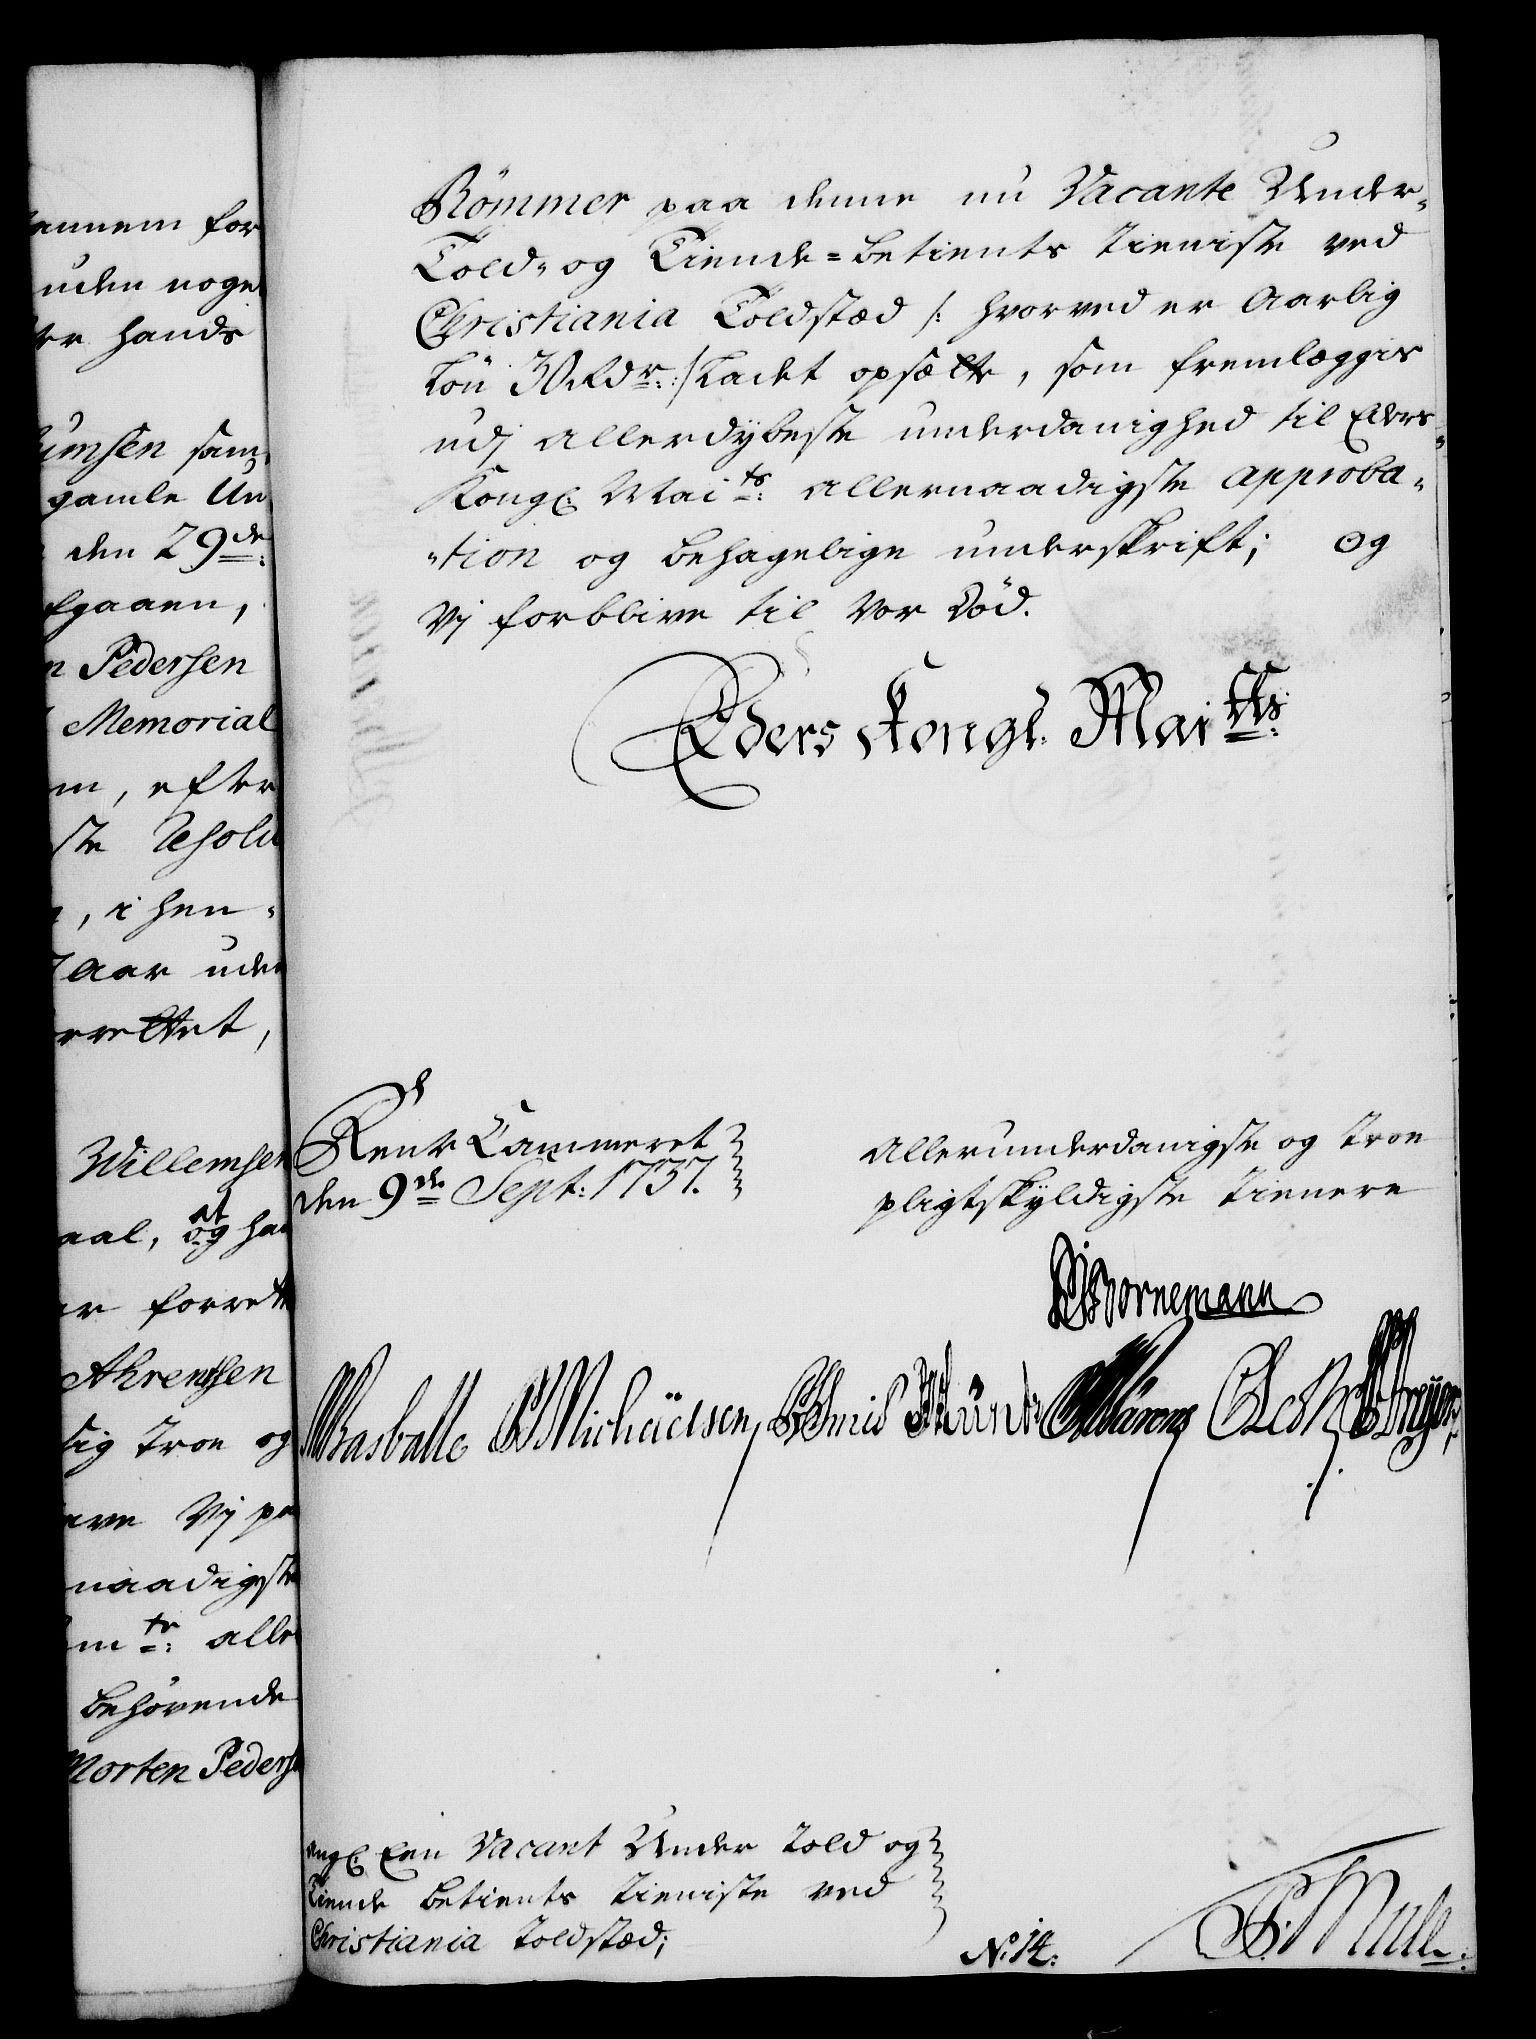 annem for
uden noge
hands
sam
gamle Un
den 29de
gaaen,
Pedersen
Memorial
m, efter
ste Resolu
, i hen-
Aar uden
rettet,
Willemsen
aal, at og han
forrett
Ahrentsen
sig troe og
Vj paa
naadigste
alle
behörende
Morten Peders
Römmer paa denne nu Vacante Under-
Told- og Tiende-betients tieniste ved
Christiania Toldstæd /: hvorved er Aarlig
Lön 30 Rdr :/ ladet opsætte, som fremlæggis
udj allerdÿbeste underdanighed til Eders
Kongl: Maits: allernaadigste Approba-
-tion og behagelige underskrift; og
Vj forblive til vor Död.
Eders Kongl: Maitts:
Rente Cammeret
den 9de Sept: 1737.
Allerunderdanigste og troe
pligtskÿldigste tienere
Bornemann
Basballe Michaëlsen
angl: Een Vacant Under Told og
Tiende betients tieniste ved
Christiania Toldstæd;
No: 14.